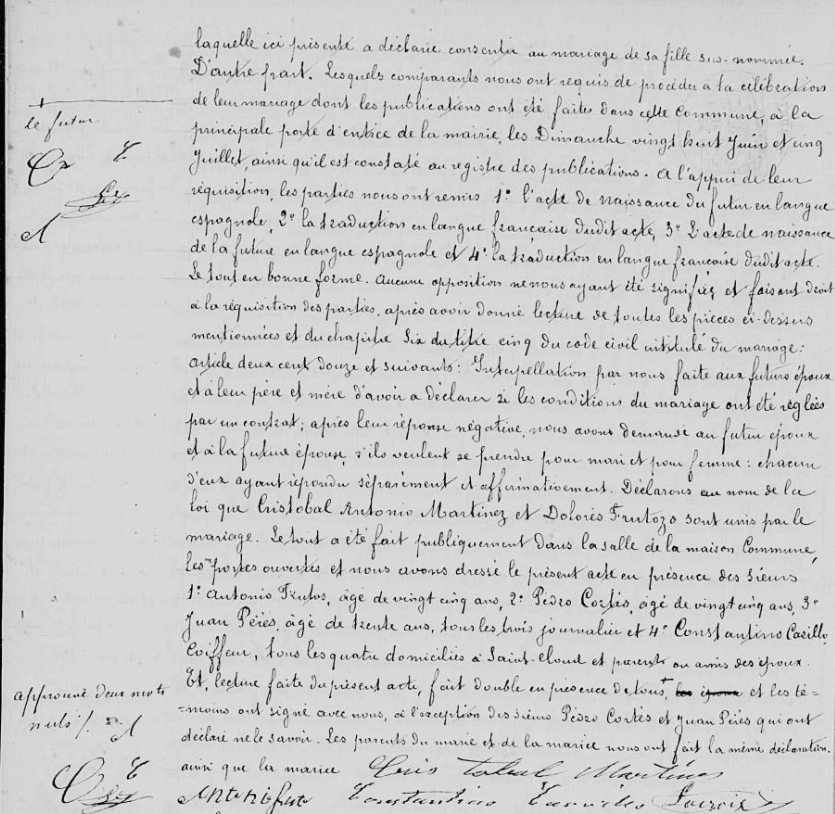 laquelle ici présente a déclaré consentir au mariage de sa fille sus-nommée.
D'autre part. Lesquels comparants nous ont requis de procéder à la célébration
de leur mariage dont les publications ont été faites dans cette Commune, à la
principale porte d'entrée de la mairie, les Dimanche vingt huit Juin et cinq
Juillet, ainsi qu'il est constaté au registre des publications. A l'appui de leur
réquisition, les parties nous ont remis 1° l'acte de naissance du futur en langue
espagnole, 2° la traduction en langue française dudit acte, 3° L'acte de naissance
de la future en langue espagnole et 4° la traduction en langue française dudit acte.
Le tout en bonne forme. Aucune opposition ne nous ayant été signifiée et faisant droit
à la réquisition des parties, après avoir donné lecture de toutes les pièces ci-dessus
mentionnées et du chapitre six du titre cinq du code civil intitulé du mariage :
article deux cent douze et suivants : Interpellation par nous faite aux futurs époux
et à leur père et mère d'avoir a déclarer si les conditions du mariage ont été réglées
par un contrat ; après leur réponse négative, nous avons demandé au futur époux
et à la future épouse, s'ils veulent se prendre pour mari et pour femme : chacun
d'eux ayant répondu séparément et affirmativement. Déclarons au nom de la
loi que Cristobal Antonio Martinez et Dolorès Frutozo sont unis par le
mariage. Le tout a été fait publiquement dans la salle de la maison Commune,
Les portes ouvertes et nous avons dressé le présent acte en présence des sieurs
1° Antonio Frutos, âgé de vingt cinq ans, 2° Pédro Cortés, âgé de vingt cinq ans, 3°
Juan Pérès, âgé de trente ans, tous les trois journalier et 4° Constantino Carillo
Coiffeur, tous les quatre domiciliés à Saint-Cloud et parents ou amis des époux.
Et, lecture faite du présent acte, fait double en présence de tous, et les té-
-moins ont signé avec nous, à l'exception des sieurs Pédro Cortés et Juan Pérès qui ont
déclaré ne le savoir. Les parents du marié et de la mariée nous ont fait la même déclaration.
ainsi que la mariée
Martinez
Constantino Lacroix
le futur
approuvé deux mots
nuls